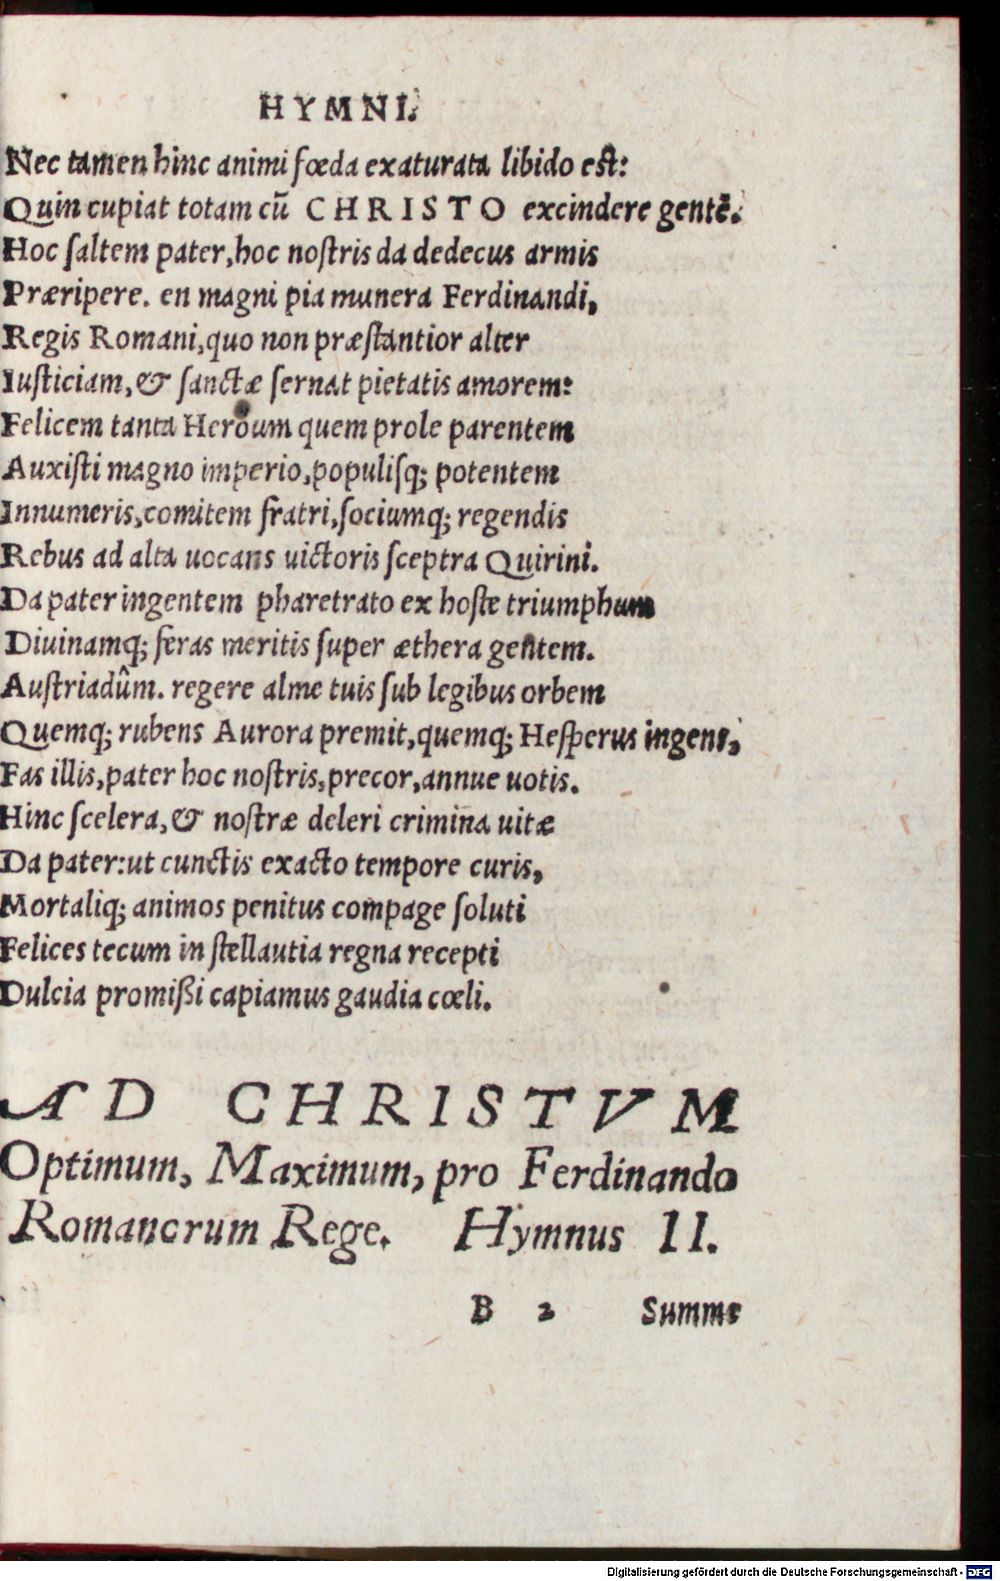 HYMNI.
Nec tamen hinc animi fœda exaturata libido est:
Quin cupiat totam cũ CHRISTO excindere gentẽ.
Hoc ſaltem pater, hoc noſtris da dedecus armis
Præripere. en magni pia munera Ferdinandi,
Regis Romani, quo non præſtantior alter
Iuſticiam, & ſanctæ ſernat pietatis amorem:
Felicem tanta Heroum quem prole parentem
Auxiſti magno imperio, populiſq; potentem
Innumeris, comitem fratri, ſociumq; regendis
Rebus ad alta uocans uictoris ſceptra Quirini.
Da pater ingentem pharetrato ex hoſte triumphum
Diuinamq; feras meritis ſuper æthera gentem.
Auſtriadûm. regere alme tuis ſub legibus orbem
Quemq; rubens Aurora premit, quemq; Heſperus ingens,
Fas illis, pater hoc noſtris, precor, annue uotis.
Hinc ſcelera, & noſtræ deleri crimina uitæ
Da pater: ut cunctis exacto tempore curis,
Mortaliq; animos penitus compage ſoluti
Felices tecum in ſtellautia regna recepti
Dulcia promißi capiamus gaudia cœli.
AD CHRISTVM
Optimum, Maximum, pro Ferdinando
Romanorum Rege. Hymnus II.
B 2 Summe
Digitalisierung gefördert durch die Deutsche Forschungsgemeinschaft - DFG